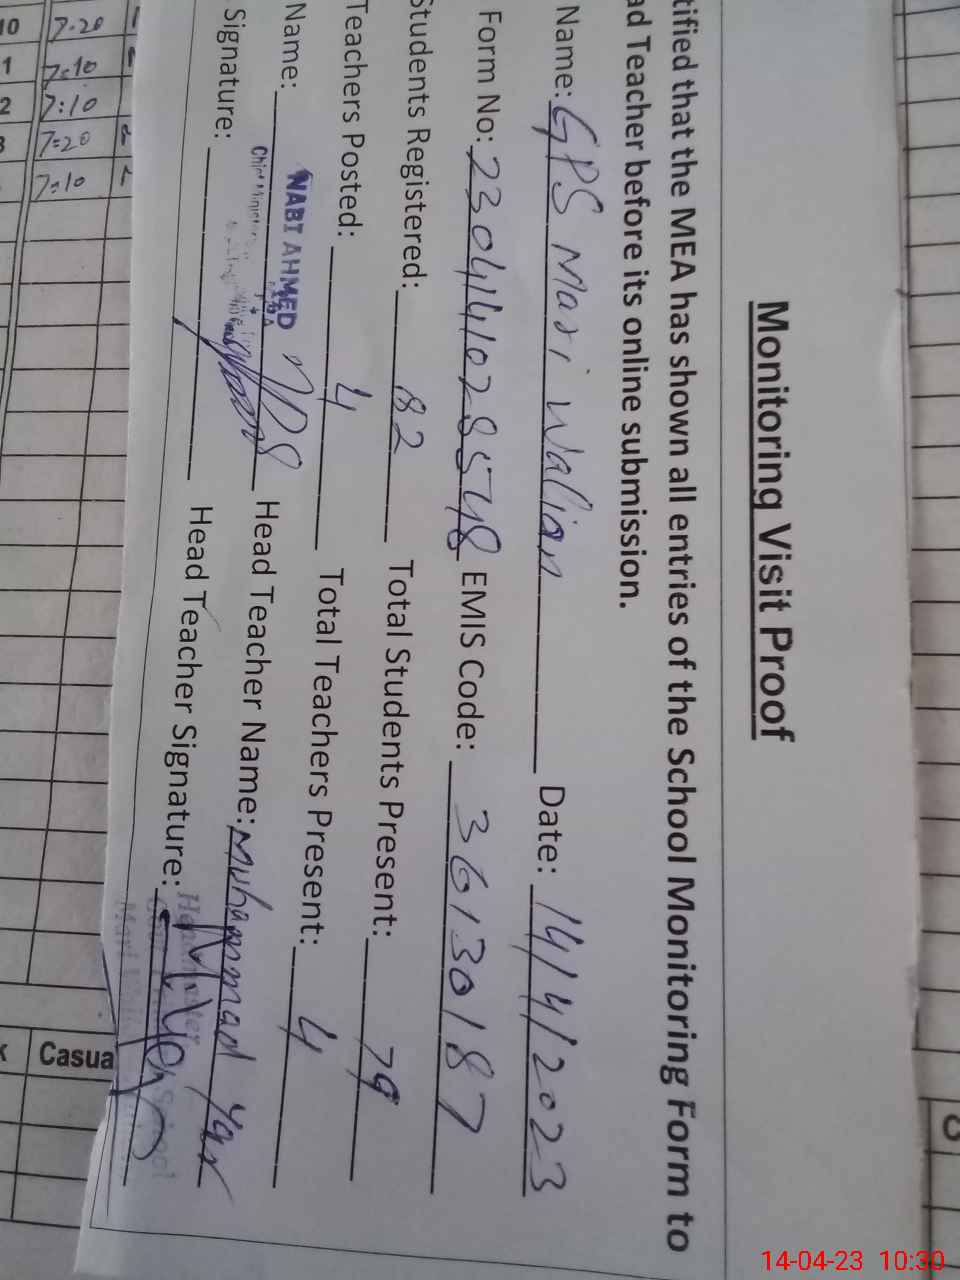 Monitoring Visit Proof
tified that the MEA has shown all entries of the School Monitoring Form to
ad Teacher before its online submission.
Name: GPS Mari Walian Date: 14/4/2023
Form No: 23041410285548 EMIS Code: 36130187
Students Registered: 82 Total Students Present: 79
Teachers Posted: 4 Total Teachers Present: 4
Name: NABI AHMED Head Teacher Name: Muhammad Yar
Signature: Head Teacher Signature:
10 7-20
1 7-10
2 7:10
7=20
7=10
Casua
14-04-23 10:30